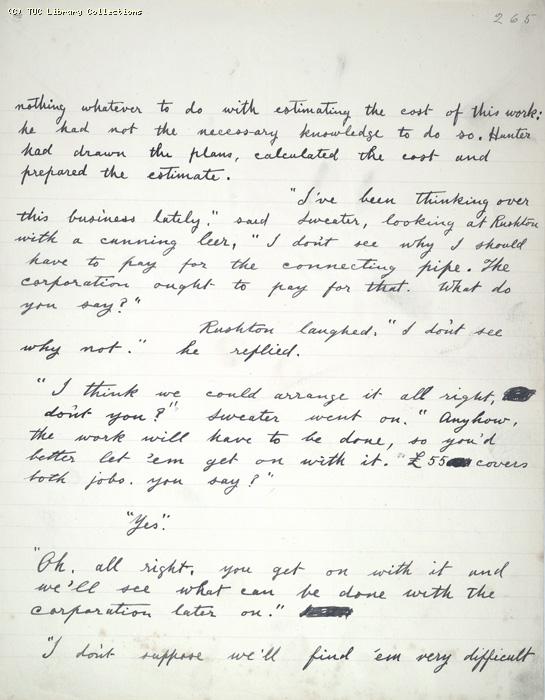 (C) TUC Library Collections
265
nothing whatever to do with estimating the cost of this work:
he had not the necessary knowledge to do so. Hunter
had drawn the plans, calculated the cost and
prepared the estimate.
"I've been thinking over
this business lately." said Sweater, looking at Rushton
with a cunning leer, "I don't see why I should
have to pay for the connecting pipe. The
corporation ought to pay for that. What do
you say?"
Rushton laughed. "I don't see
why not." he replied.
"I think we could arrange it all right,
don't you?" Sweater went on. "Anyhow,
the work will have to be done, so you'd
better let 'em get on with it. "£55 covers
both jobs. you say?"
"Yes".
"Oh. all right. you get on with it and
we'll see what can be done with the
corporation later on."
"I don't suppose we'll find 'em very difficult